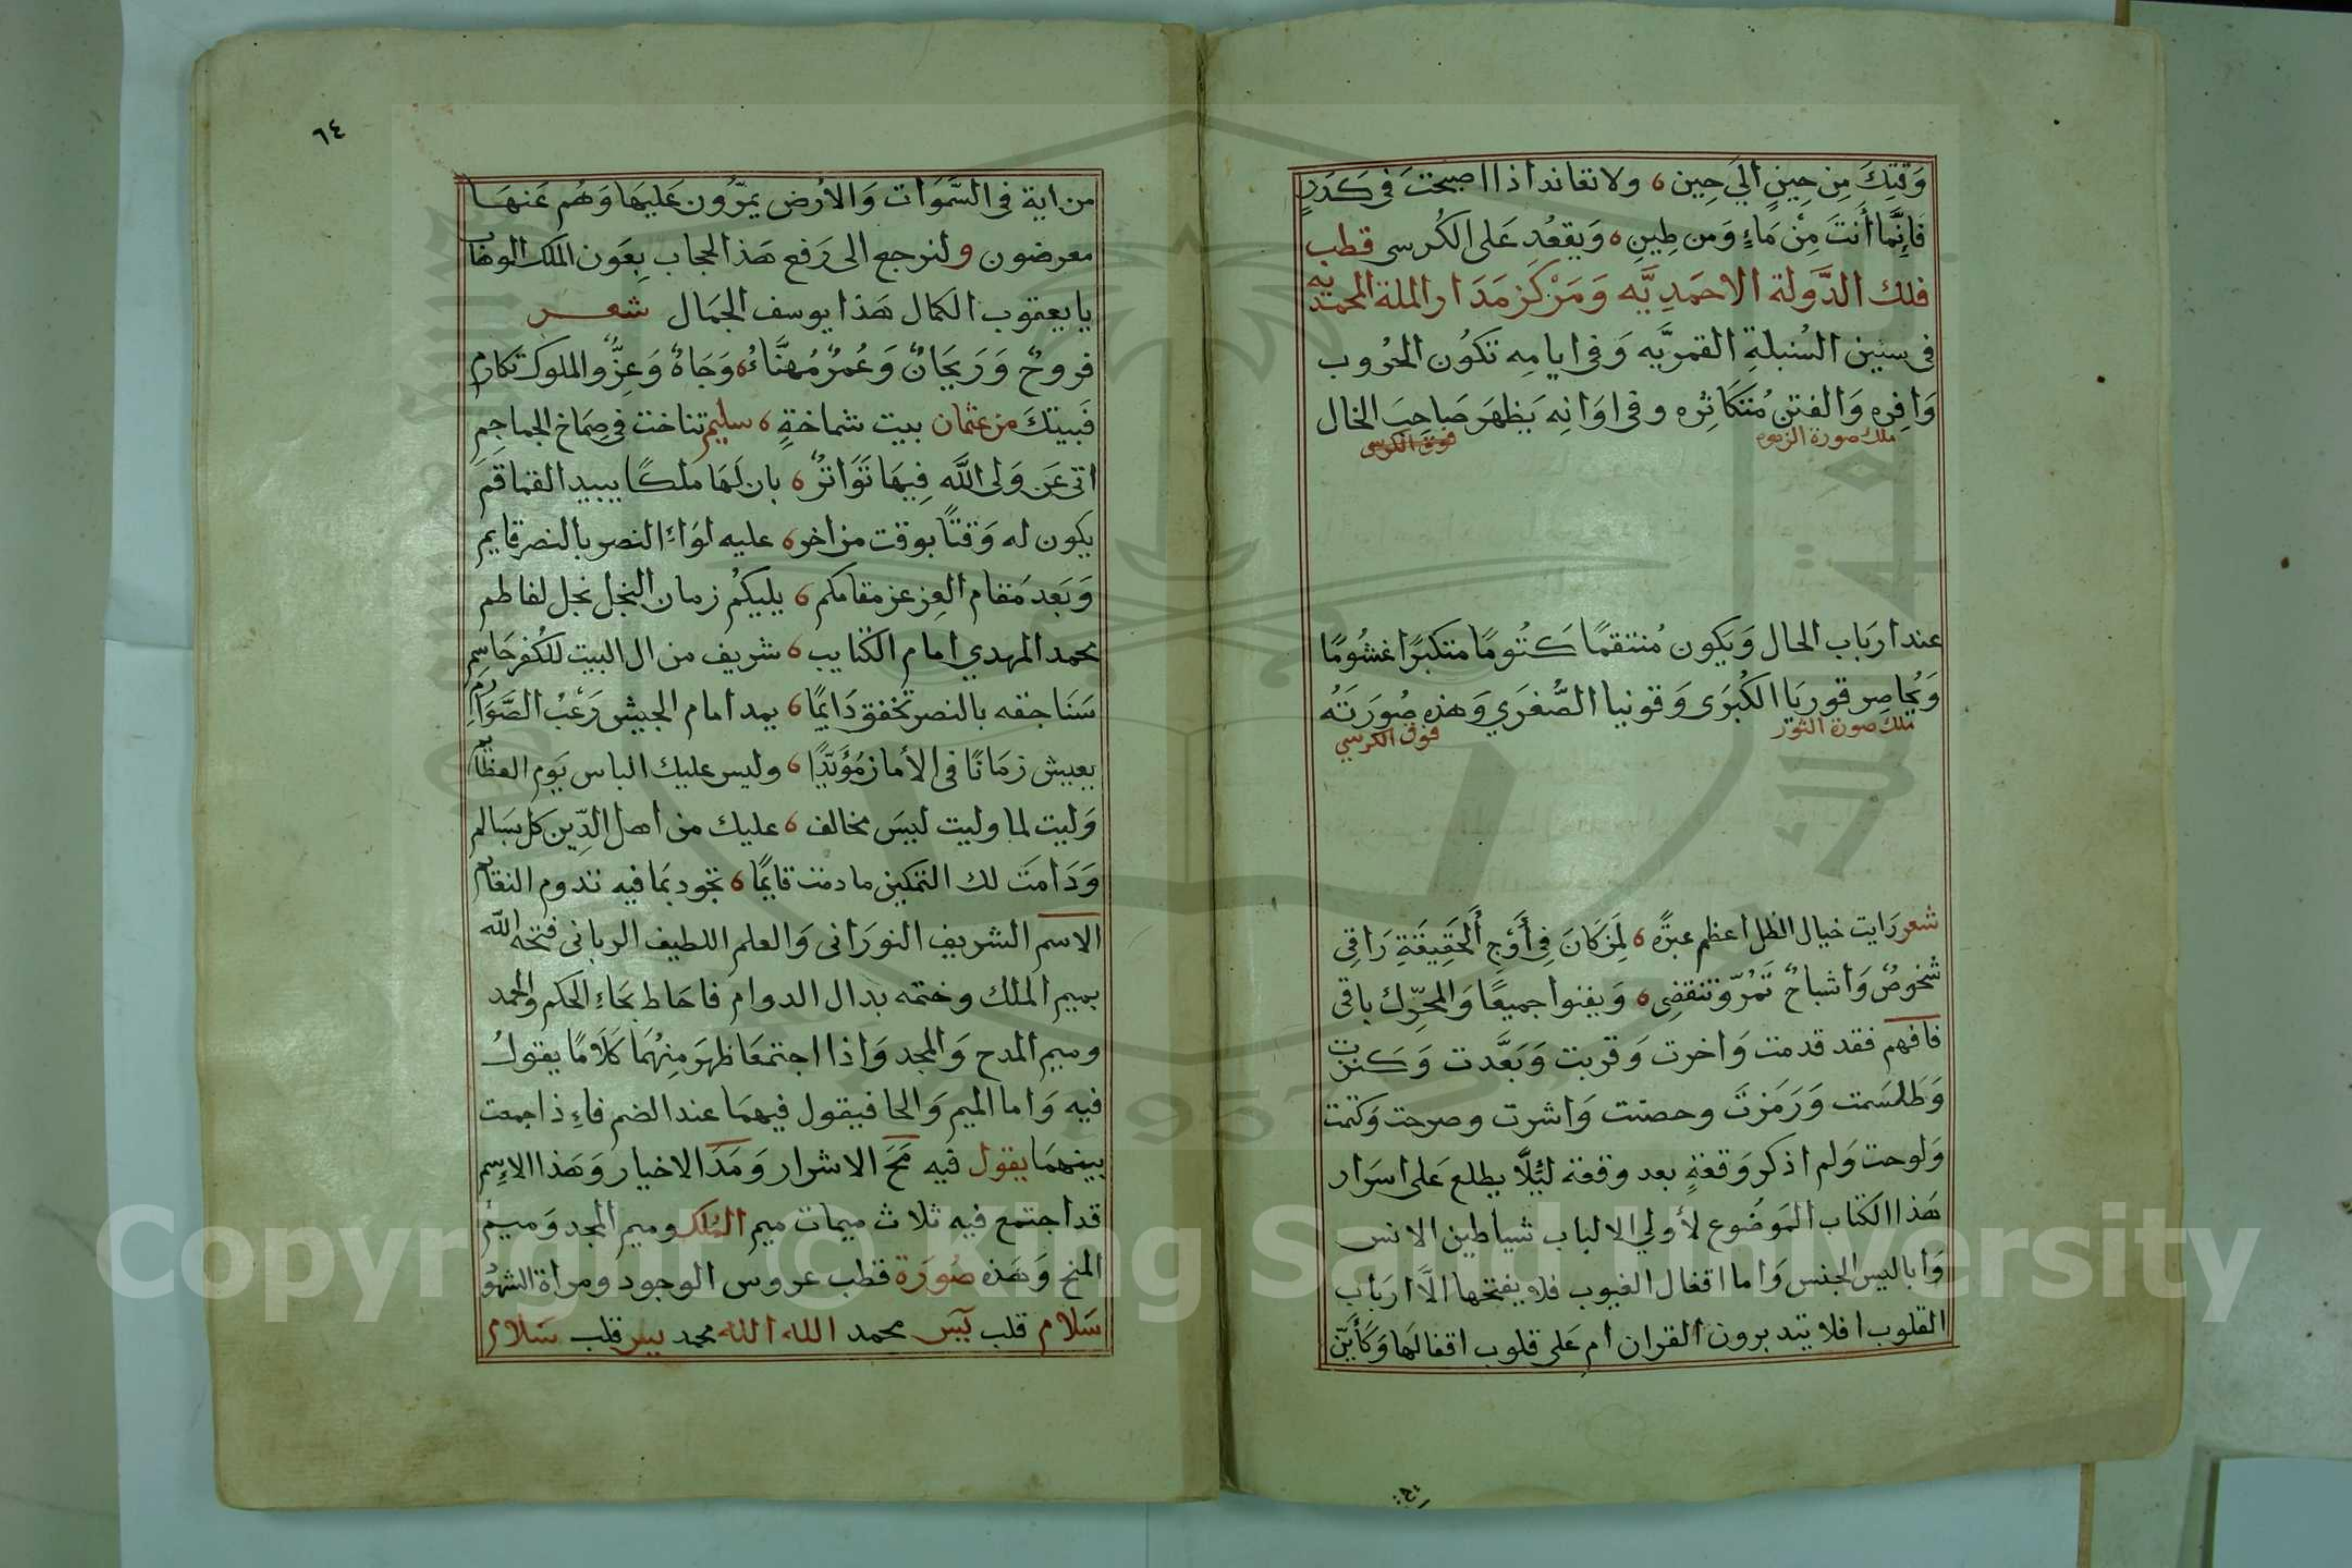 وَقتِكَ مِن حِينٍ الَي حِين ولا تعاند اذا اصبحتَ في كَدَرٍ
فَاِنَّما أنتَ مِنْ مَاءٍ وَمن طِينِ وَيقعُد عَلى الكُرسى قطب
فلك الدَّولة الاحمَدِيَّه وَمَرْكَز مَدَار الملة المحمديه
في سنين السُنبلةِ القمريَّه وَفي ايامِه تكوُن الحُروب
وَافِره وَالفتن مُتَكَاثِره وفي اوَانِه يَظهَر صَاحِبَ الخال
ملك صورة الزهره فوق الكرسى
عند ارباب الحال وَيكون مُنتقمًا كتُومًا متكبرًا غشُومًا
وَيُحاصِر قوريَا الكُبرَى وَقونيا الصُّغرَي وَهذه صُورَتَه
ملك صورة الثور فوق الكرسي
شعر رَايت خيال الظل اعظم عبرًه لِمَن كَانَ فِي أَوْجِ أَلحَقِيقَةِ رَاقِي
شخوصٌ وَاشباحٌ تَمُرّ وتنقضِى وَيفنوا جميعًا وَالمحرّك باقى
فافهم فقد قدمت وَاخرت وَقربت وَبَعَّدت وَكنزت
وَطَلسَمت وَرَمَزتَ وحصنت وَاشرت وصرحت وَكتمت
وَلوحت وَلم اذكر وَقعَةٍ بعد وقعة لئِلَّا يطلع عَلى اسرَار
هَذا الكتاب الموَضُوع لأولي الالباب شياطين الانس
وَاباليس الجنس وَاما اقفال الغيوب فلا يفتحها الَّا ارَباب
القلوب افلا يتدبرون القران ام عَلى قلوب اقفالهَا وَكَأَيّن
٦٤
من اية في السَّمَوَات وَالارُض يمرّون عَليهَا وَهُم عَنهَا
معرضون ولنرجع الى رَفع هَذ الحجاب بِعَون الملك الوهاب
يا يعقوب الكمال هَذا يوسف الجمَال شعر
فروحٌ وَرَيحَانٌ وَعُمرٌ مُهنَّاءُ وَجَاهٌ وَعِزٌّ والملوك تكارم
فَبيتكَ من عثمان بيت شماخةٍ سليم تناخت في صِمَاخ الجماجِمِ
اتى عَن وَلى اللَّه فِيهَا تَوَاترٌ بان لَهَا مَلكًا يبيد القماقم
يكون له وَقتًا بوقت من اخر عليه لوَاءَ النصر بالنصر قايم
وَبَعد مَقام العِز عز مقامكم يليكمُ زمان النجل نجل لفاطم
محمد المهدي امام الكتايب شريف من ال البيت للكُفر حَاسِمِ
سَنَاجقه بالنصر تخفق دَايمًا يمد امام الجيش رَعَبُ الصَّوَارِمِ
يعيش زمَانًا في الأمان مُؤَبَّدًا وليس عليك الباس يَوم العظايم
وَليت لما وليت ليسَ مخالف عليك من اهل الدِّين كل بسَالم
وَدَامتَ لك التمكين ما دمت قايمًا تجود بمَا فيه تدوم النقايم
الاسم الشريف النورَانى وَالعلم اللطيف الربانى فتحه الله
بميم الملك وختمه بدال الدوام فاحَاط بحَاءِ الحكم والحمد
وميم المدح وَالمجد وَاذا اجتمعَا ظهرَ مِنهُمَا كَلَامًا يقولُ
فيه وَاما الميم وَالحا فيقول فيهمَا عند الضم فاءِذا جمعت
بينهمَا يقول فيه مَحَ الاشرار وَمَدَ الاخيار وَهَذا الاسِم
قد اجتمع فيه ثلاث ميمات ميم الملك وميم المجد وَميم
المنح وَهَذه صُورَة قطب عروس الوجود ومراة الشهود
سَلام قلب يس محمد الله الله محمد يس قلب سَلام